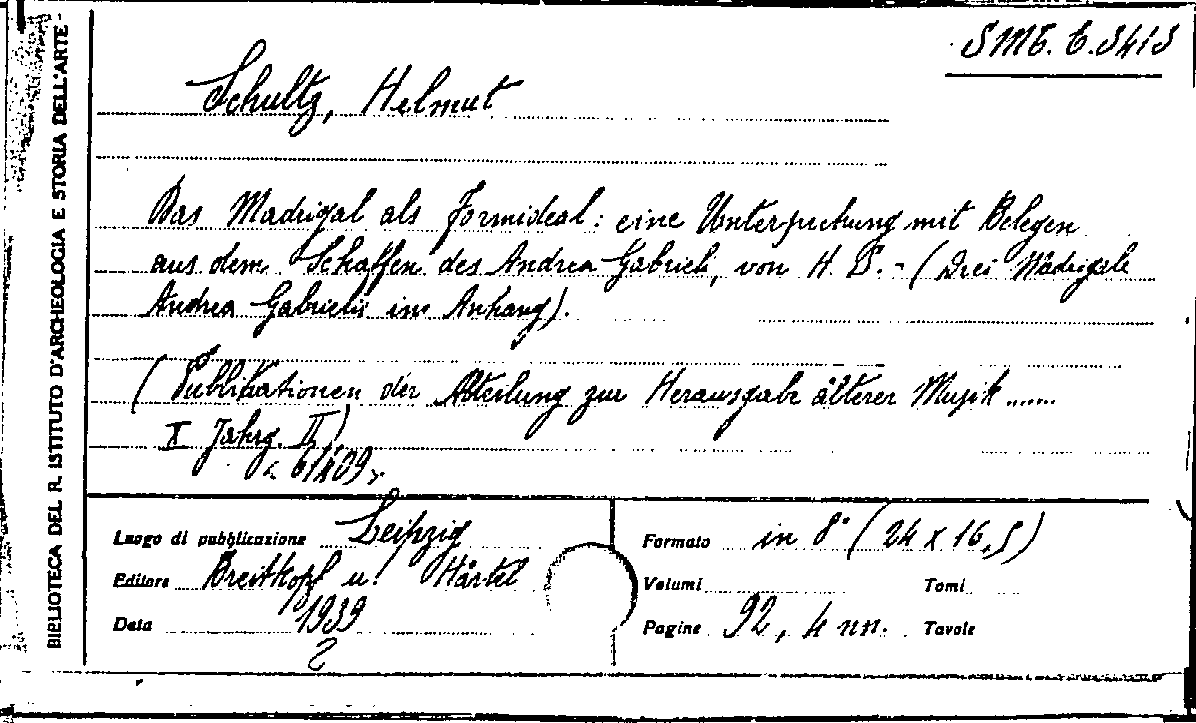 SME. E. 3415
BIBLIOTECA DEL R. ISTITUTO D'ARCHEOLOGIA E STORIA DELL'ARTE
Schultz, Helmut
Das Madrigal als Formideal: eine Untersuchung mit Belegen
aus dem Schaffen des Andrea Gabrieli, von H. S. - (Drei Madrigale
Andrea Gabrielis im Anhang).
(Publikationen der Abteilung zur Herausgabe älterer Musik ......
X Jahrg. II)
< 61409 >
Luogo di pubblicazione Leipzig
Editore Breitkopf u. Härtel
Data 1939
2
Formato in 8° (24 x 16,5)
Volumi Tomi
Pagine 92, 4 nn. Tavole